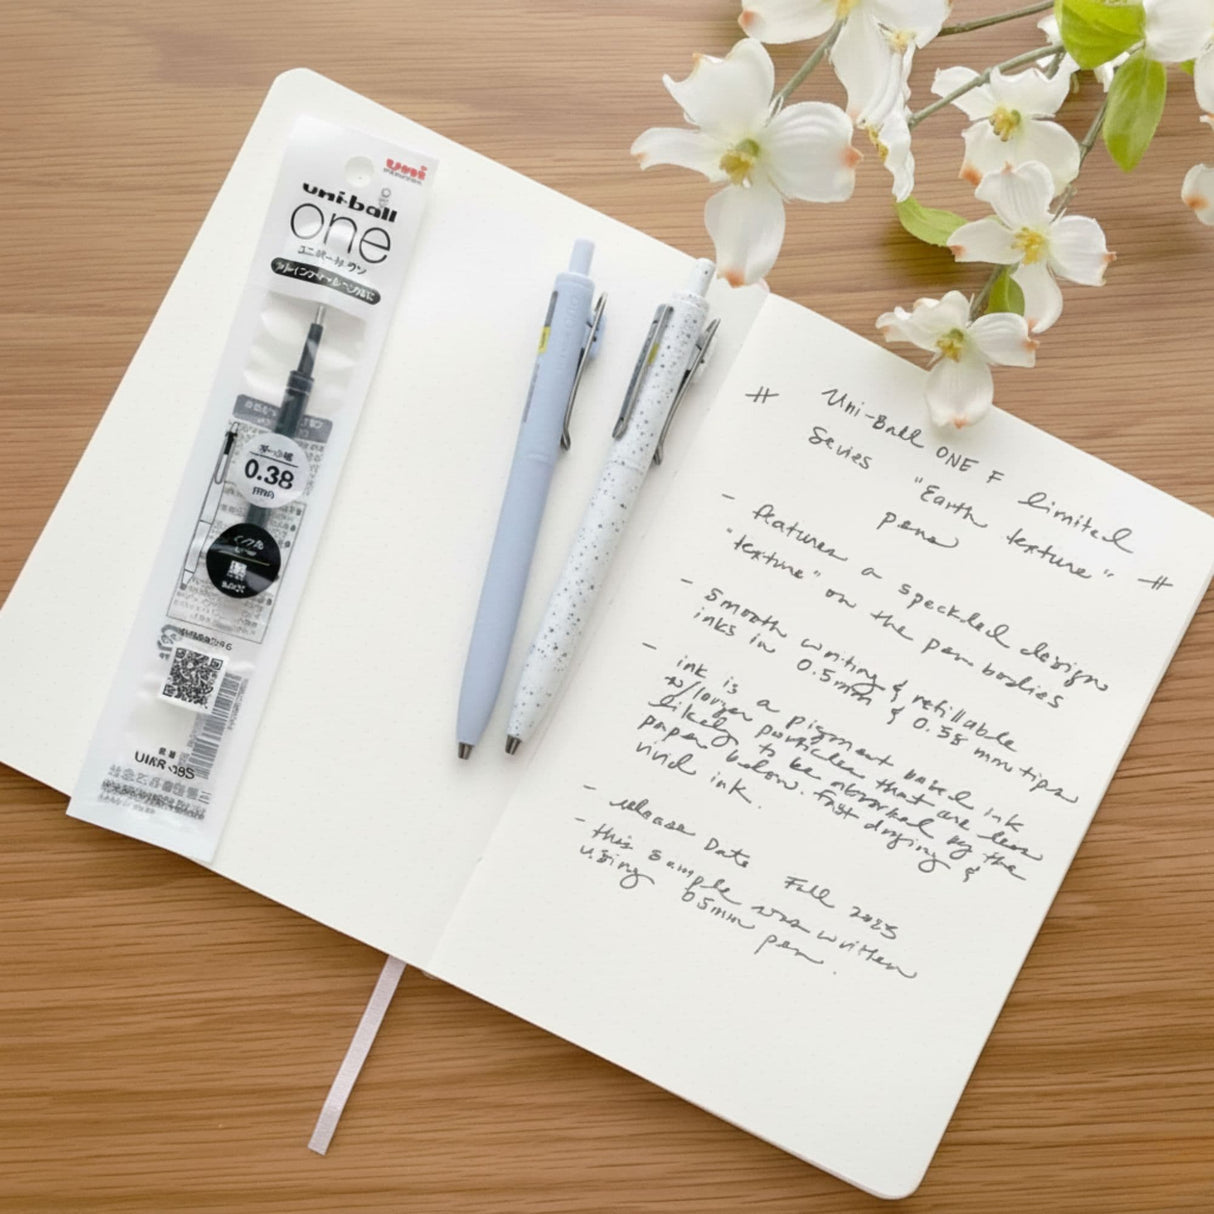 uni
uni-ball
one
ユニボール ワン
0.38
UMR-38S
# Uni-Ball ONE F limited
Series "Earth texture" #
pens
- features a speckled design
"texture" on the pen bodies
- smooth writing & refillable
inks in 0.5mm & 0.38 mm tips
- ink is a pigment based ink
w/larger particles that are less
likely to be absorbed by the
paper below. Fast drying &
vivid ink.
- release Date Fall 2023
- this sample was written
using 05mm pen.